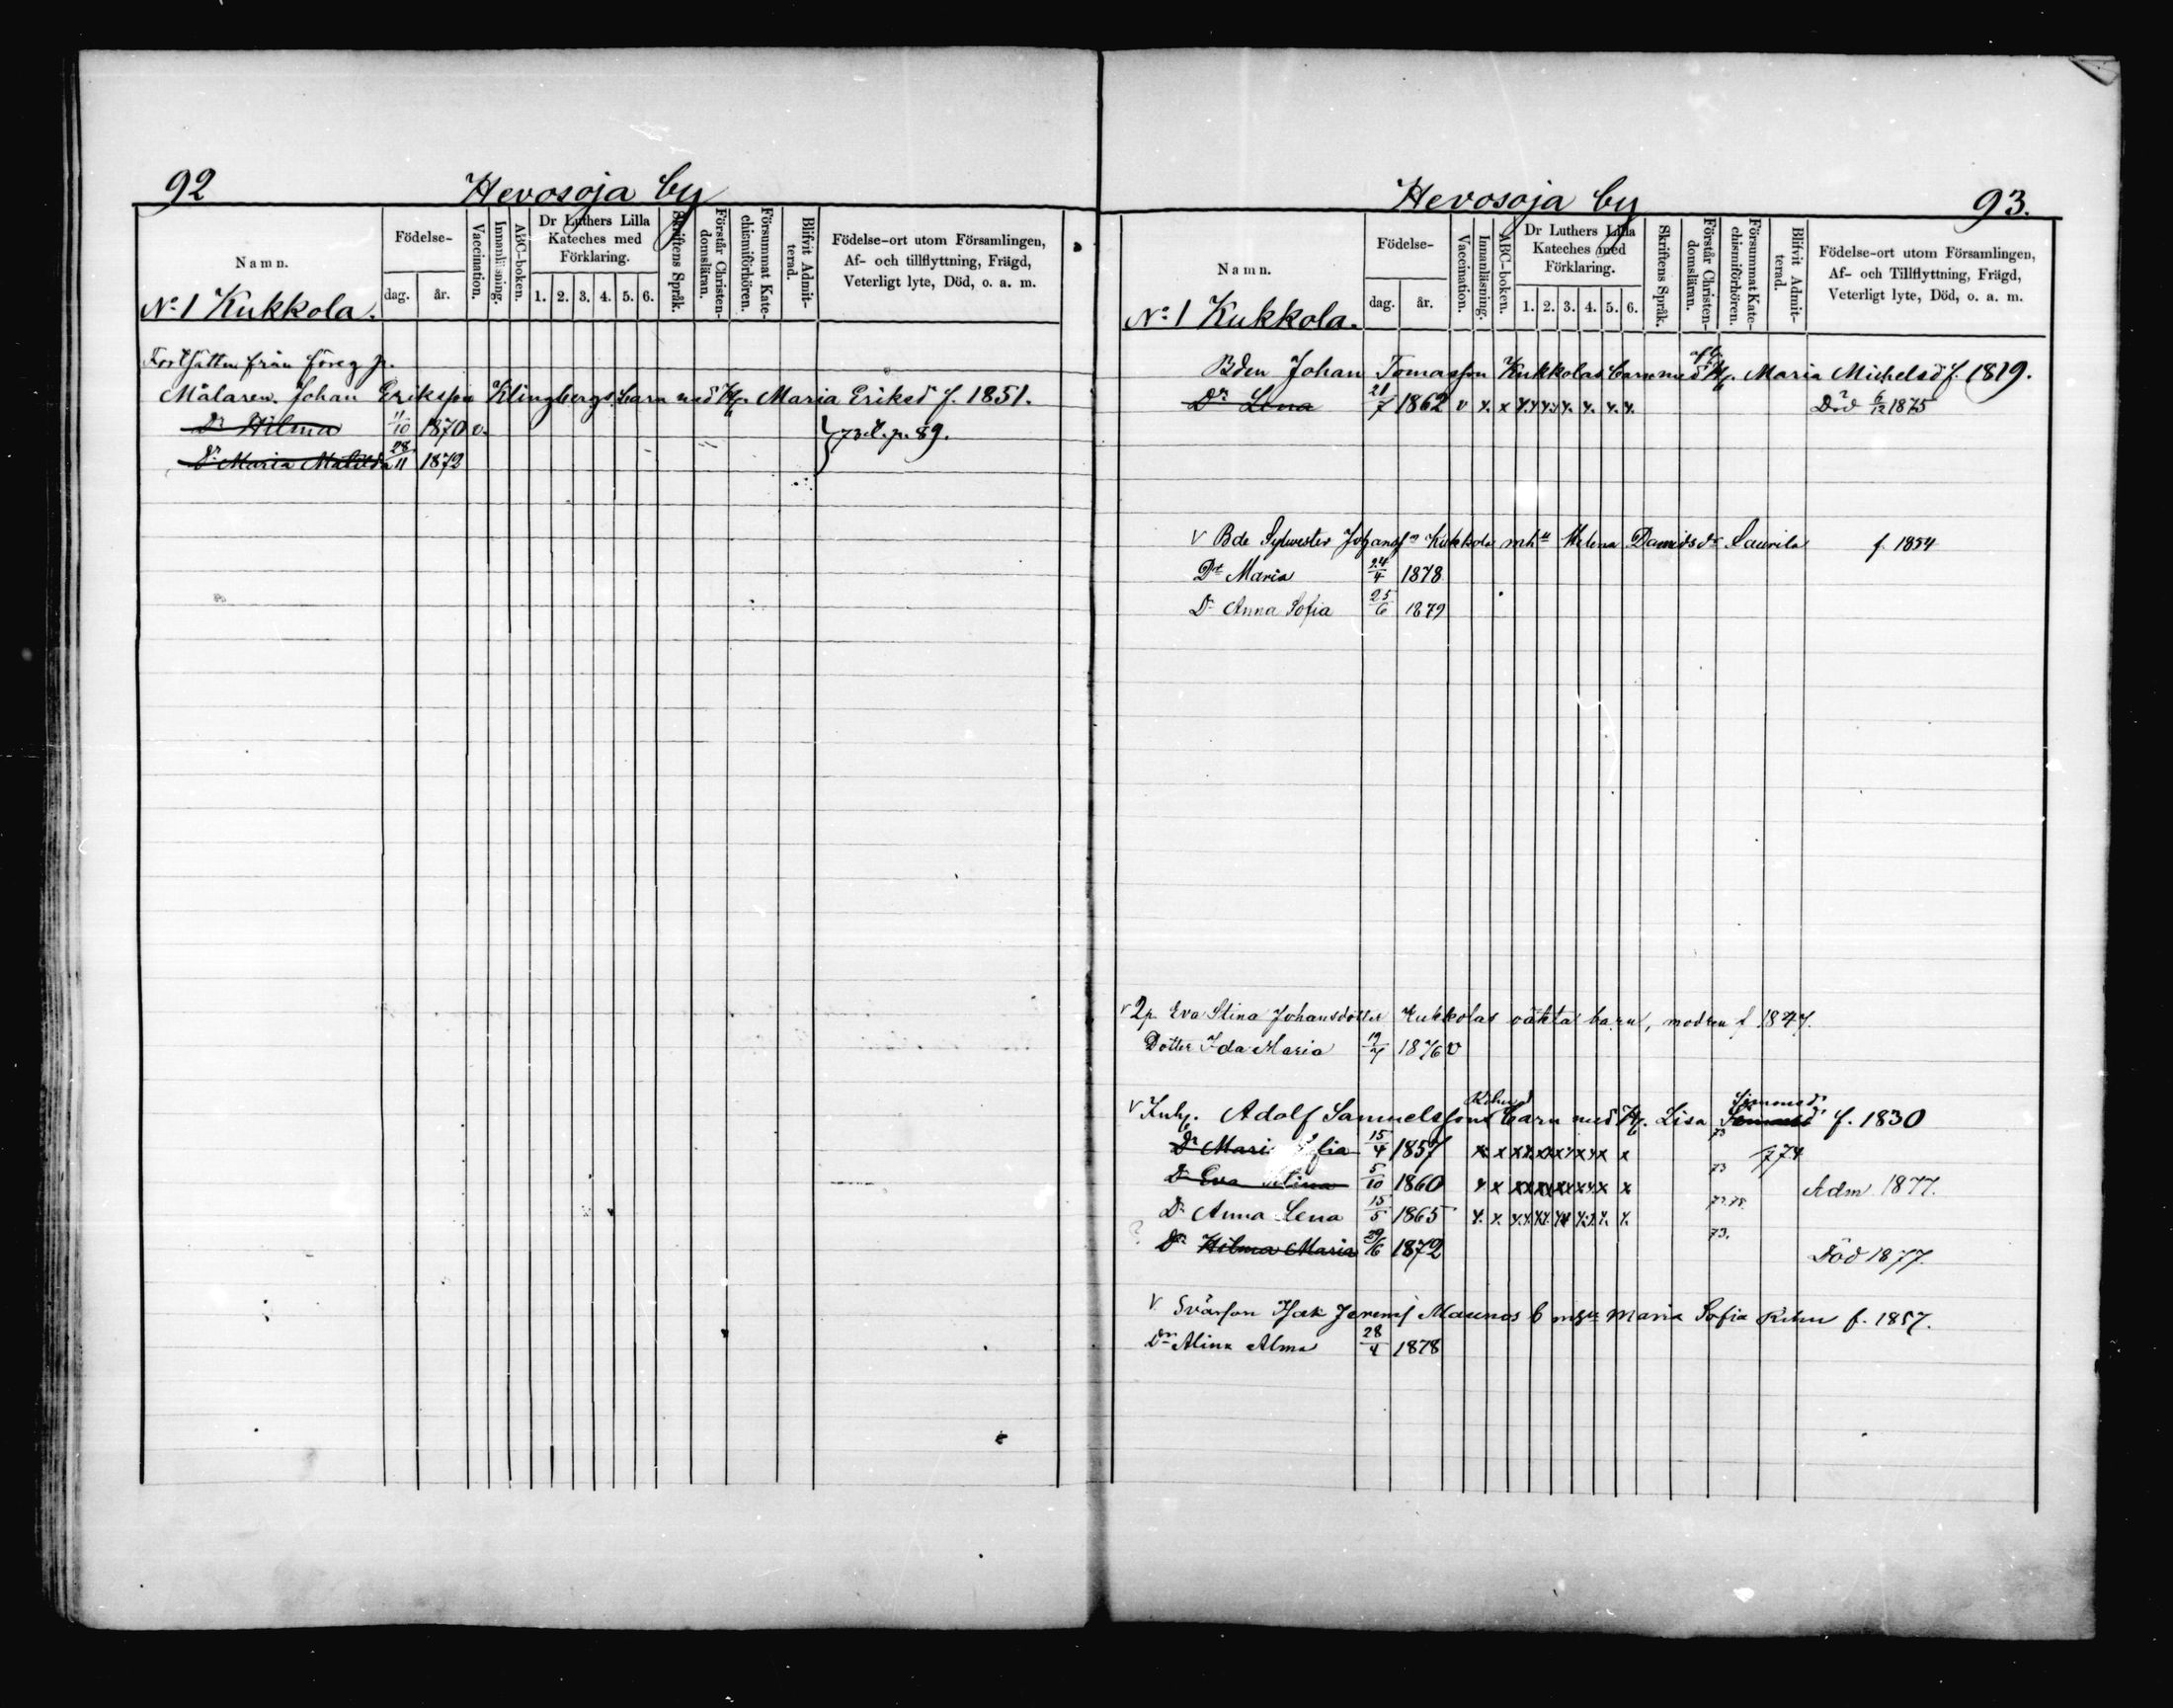 92 Hevosoja by
Namn. Födelse- dag. år. Vaccination. Innanläsning. ABC-boken. Dr Luthers Lilla Kateches med Förklaring. 1. 2. 3. 4. 5. 6. Skriftens Språk. Förstår Christendomsläran. Försummat Katechismiförhören. Blifvit Admitterad. Födelse-ort utom Församlingen, Af- och tillflyttning, Frägd, Veterligt lyte, Död, o. a. m.
No 1 Kukkola.
från föreg p.
Målaren Johan Eriksson Klingbergs barn med H. Maria Eriksd f. 1851.
Dr Hilma 11/10 1870 v.
Dr Maria Matilda 28/11 1872
p. 89.
Hevosoja by 93.
Namn. Födelse- dag. år. Vaccination. Innanläsning. ABC-boken. Dr Luthers Lilla Kateches med Förklaring. 1. 2. 3. 4. 5. 6. Skriftens Språk. Förstår Christendomsläran. Försummat Katechismiförhören. Blifvit Admitterad. Födelse-ort utom Församlingen, Af- och Tillflyttning, Frägd, Veterligt lyte, Död, o. a. m.
No 1 Kukkola.
Bden Johan Tomasson Kukkolas barn med H. Maria Michelsd f. 1819.
Dr Lena 21/7 1862 v x. x x. x x. x. x. x. x. Död 6/12 1875
v Bde Sylvester Johansn Kukkola mhu Helena Davidsdr Laurila f. 1854
Dr Maria 24/4 1878
Dr Anna Sofia 25/6 1879
v Dp Eva Stina Johansdotter Kukkolas oäkta barn, modren f 1847.
Dotter Ida Maria 19/7 1876 v
v Inh. Adolf Samuelssons Kihns barn med H. Lisa Simonsd f. 1830
Dr Maria Sofia 15/4 1857 x x x x x x x x x x 73 774
Dr Eva Stina 5/10 1860 x x x x x x x x x x 73 Adm 1877.
Dr Anna Lena 15/5 1865 x. x. x x x x x x x. x. 73.75.
Dr Hilma Maria 29/6 1872 73. Död 1877.
v Svärson Isak Jeremsn Maunos b m hu Maria Sofia Kihn f. 1857.
Dr Alina Alma 28/4 1878